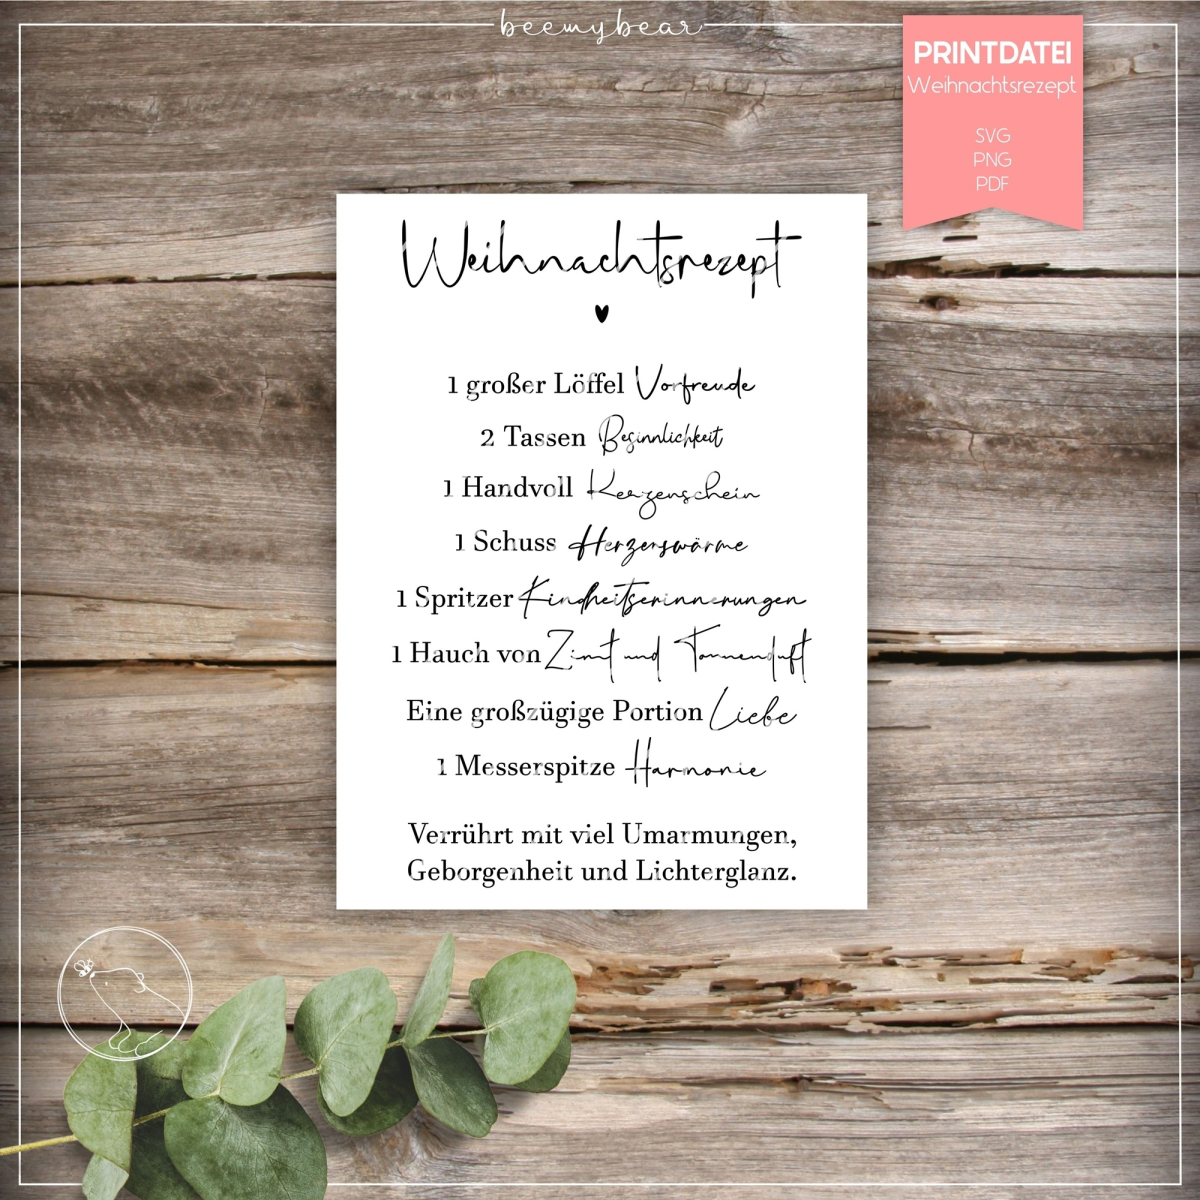 beemybear
PRINTDATEI
Weihnachtsrezept
SVG
PNG
PDF
Weihnachtsrezept
1 großer Löffel Vorfreude
2 Tassen Besinnlichkeit
1 Handvoll Kerzenschein
1 Schuss Herzenswärme
1 Spritzer Kindheitserinnerungen
1 Hauch von Zimt und Tannenduft
Eine großzügige Portion Liebe
1 Messerspitze Harmonie
Verrührt mit viel Umarmungen,
Geborgenheit und Lichterglanz.